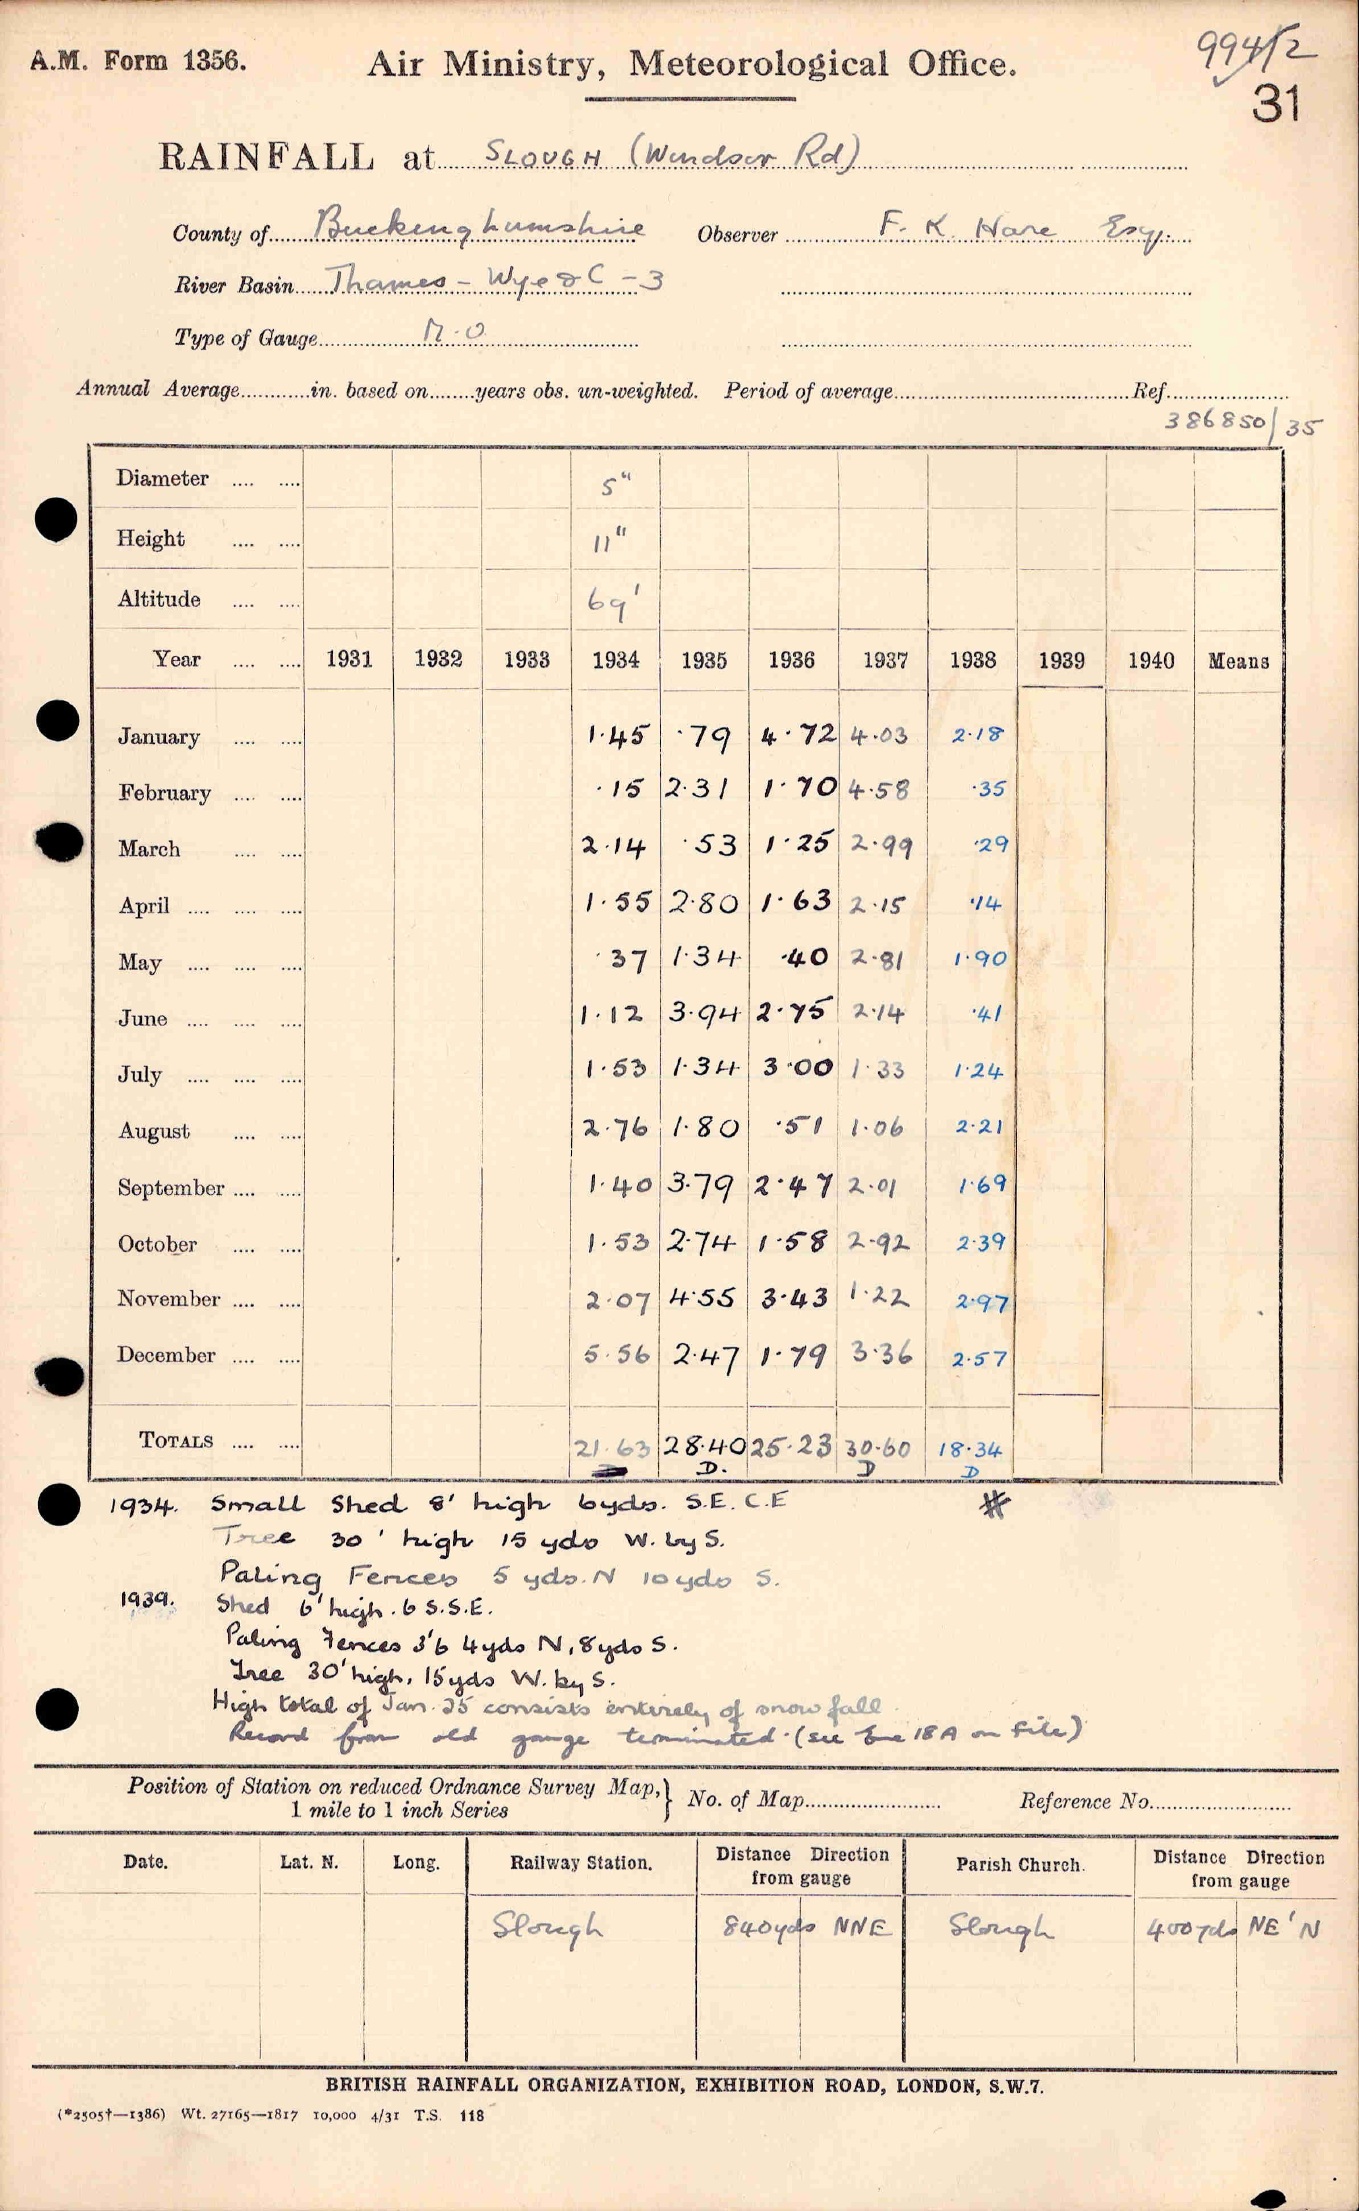 A.M. Form 1356.
Air Ministry, Meteorological Office.
994/2
31
RAINFALL at SLOUGH (Windsor Rd)
County of Buckinghamshire Observer F. K. Hare Esq.
River Basin Thames - Wye & C - 3
Type of Gauge M.O
Annual Average............in. based on........years obs. un-weighted. Period of average Ref.
386850/35
Diameter .... .... 5"
Height .... .... 11"
Altitude .... .... 69'
Year .... .... 1931 1932 1933 1934 1935 1936 1937 1938 1939 1940 Means
January .... .... 1.45 .79 4.72 4.03 2.18
February .... .... .15 2.31 1.70 4.58 .35
March .... .... 2.14 .53 1.25 2.99 .29
April .... .... .... 1.55 2.80 1.63 2.15 .14
May .... .... .... .37 1.34 .40 2.81 1.90
June .... .... .... 1.12 3.94 2.75 2.14 .41
July .... .... .... 1.53 1.34 3.00 1.33 1.24
August .... .... 2.76 1.80 .51 1.06 2.21
September .... .... 1.40 3.79 2.47 2.01 1.69
October .... .... 1.53 2.74 1.58 2.92 2.39
November .... .... 2.07 4.55 3.43 1.22 2.97
December .... .... 5.56 2.47 1.79 3.36 2.57
TOTALS .... .... 21.63 28.40 25.23 30.60 18.34
D. D D
1934. Small Shed 8' high 6yds. S.E. C.E
Tree 30' high 15 yds W. by S.
Paling Fences 5 yds. N 10 yds S.
1939. Shed 6' high. 6 S.S.E.
Paling Fences 3'6 4yds N, 8yds S.
Tree 30' high, 15yds W. by S.
High total of Jan. 35 consists entirely of snow fall
Record from old gauge terminated. (see 18A on File)
Position of Station on reduced Ordnance Survey Map, } No. of Map Reference No.
1 mile to 1 inch Series
Date. Lat. N. Long. Railway Station. Distance Direction from gauge Parish Church. Distance Direction from gauge
Slough 840yds NNE Slough 400yds NE'N
BRITISH RAINFALL ORGANIZATION, EXHIBITION ROAD, LONDON, S.W.7.
(*2505†—1386) Wt. 27165—1817 10,000 4/31 T.S. 118